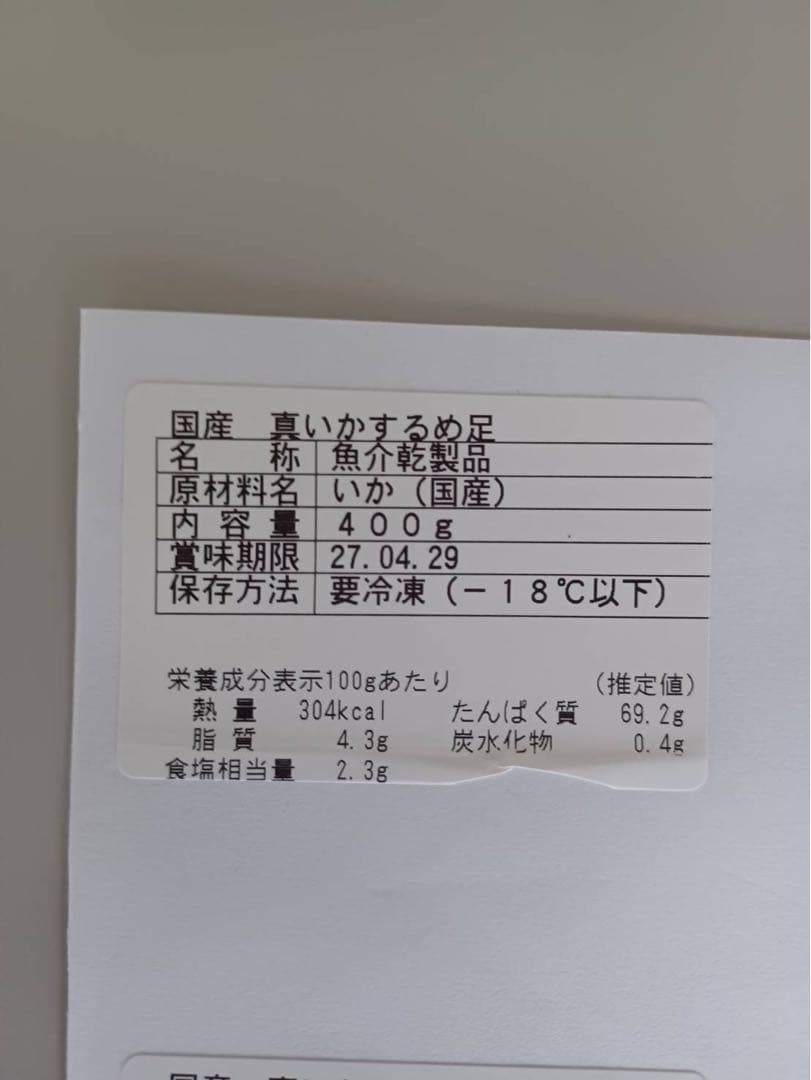 国産　真いかするめ足
名　　称　魚介乾製品
原材料名　いか（国産）
内 容 量　４００ｇ
賞味期限　27.04.29
保存方法　要冷凍（－１８℃以下）
栄養成分表示100gあたり　（推定値）
熱 量　304kcal　たんぱく質　69.2g
脂 質　4.3g　炭水化物　0.4g
食塩相当量　2.3g
国産　真い